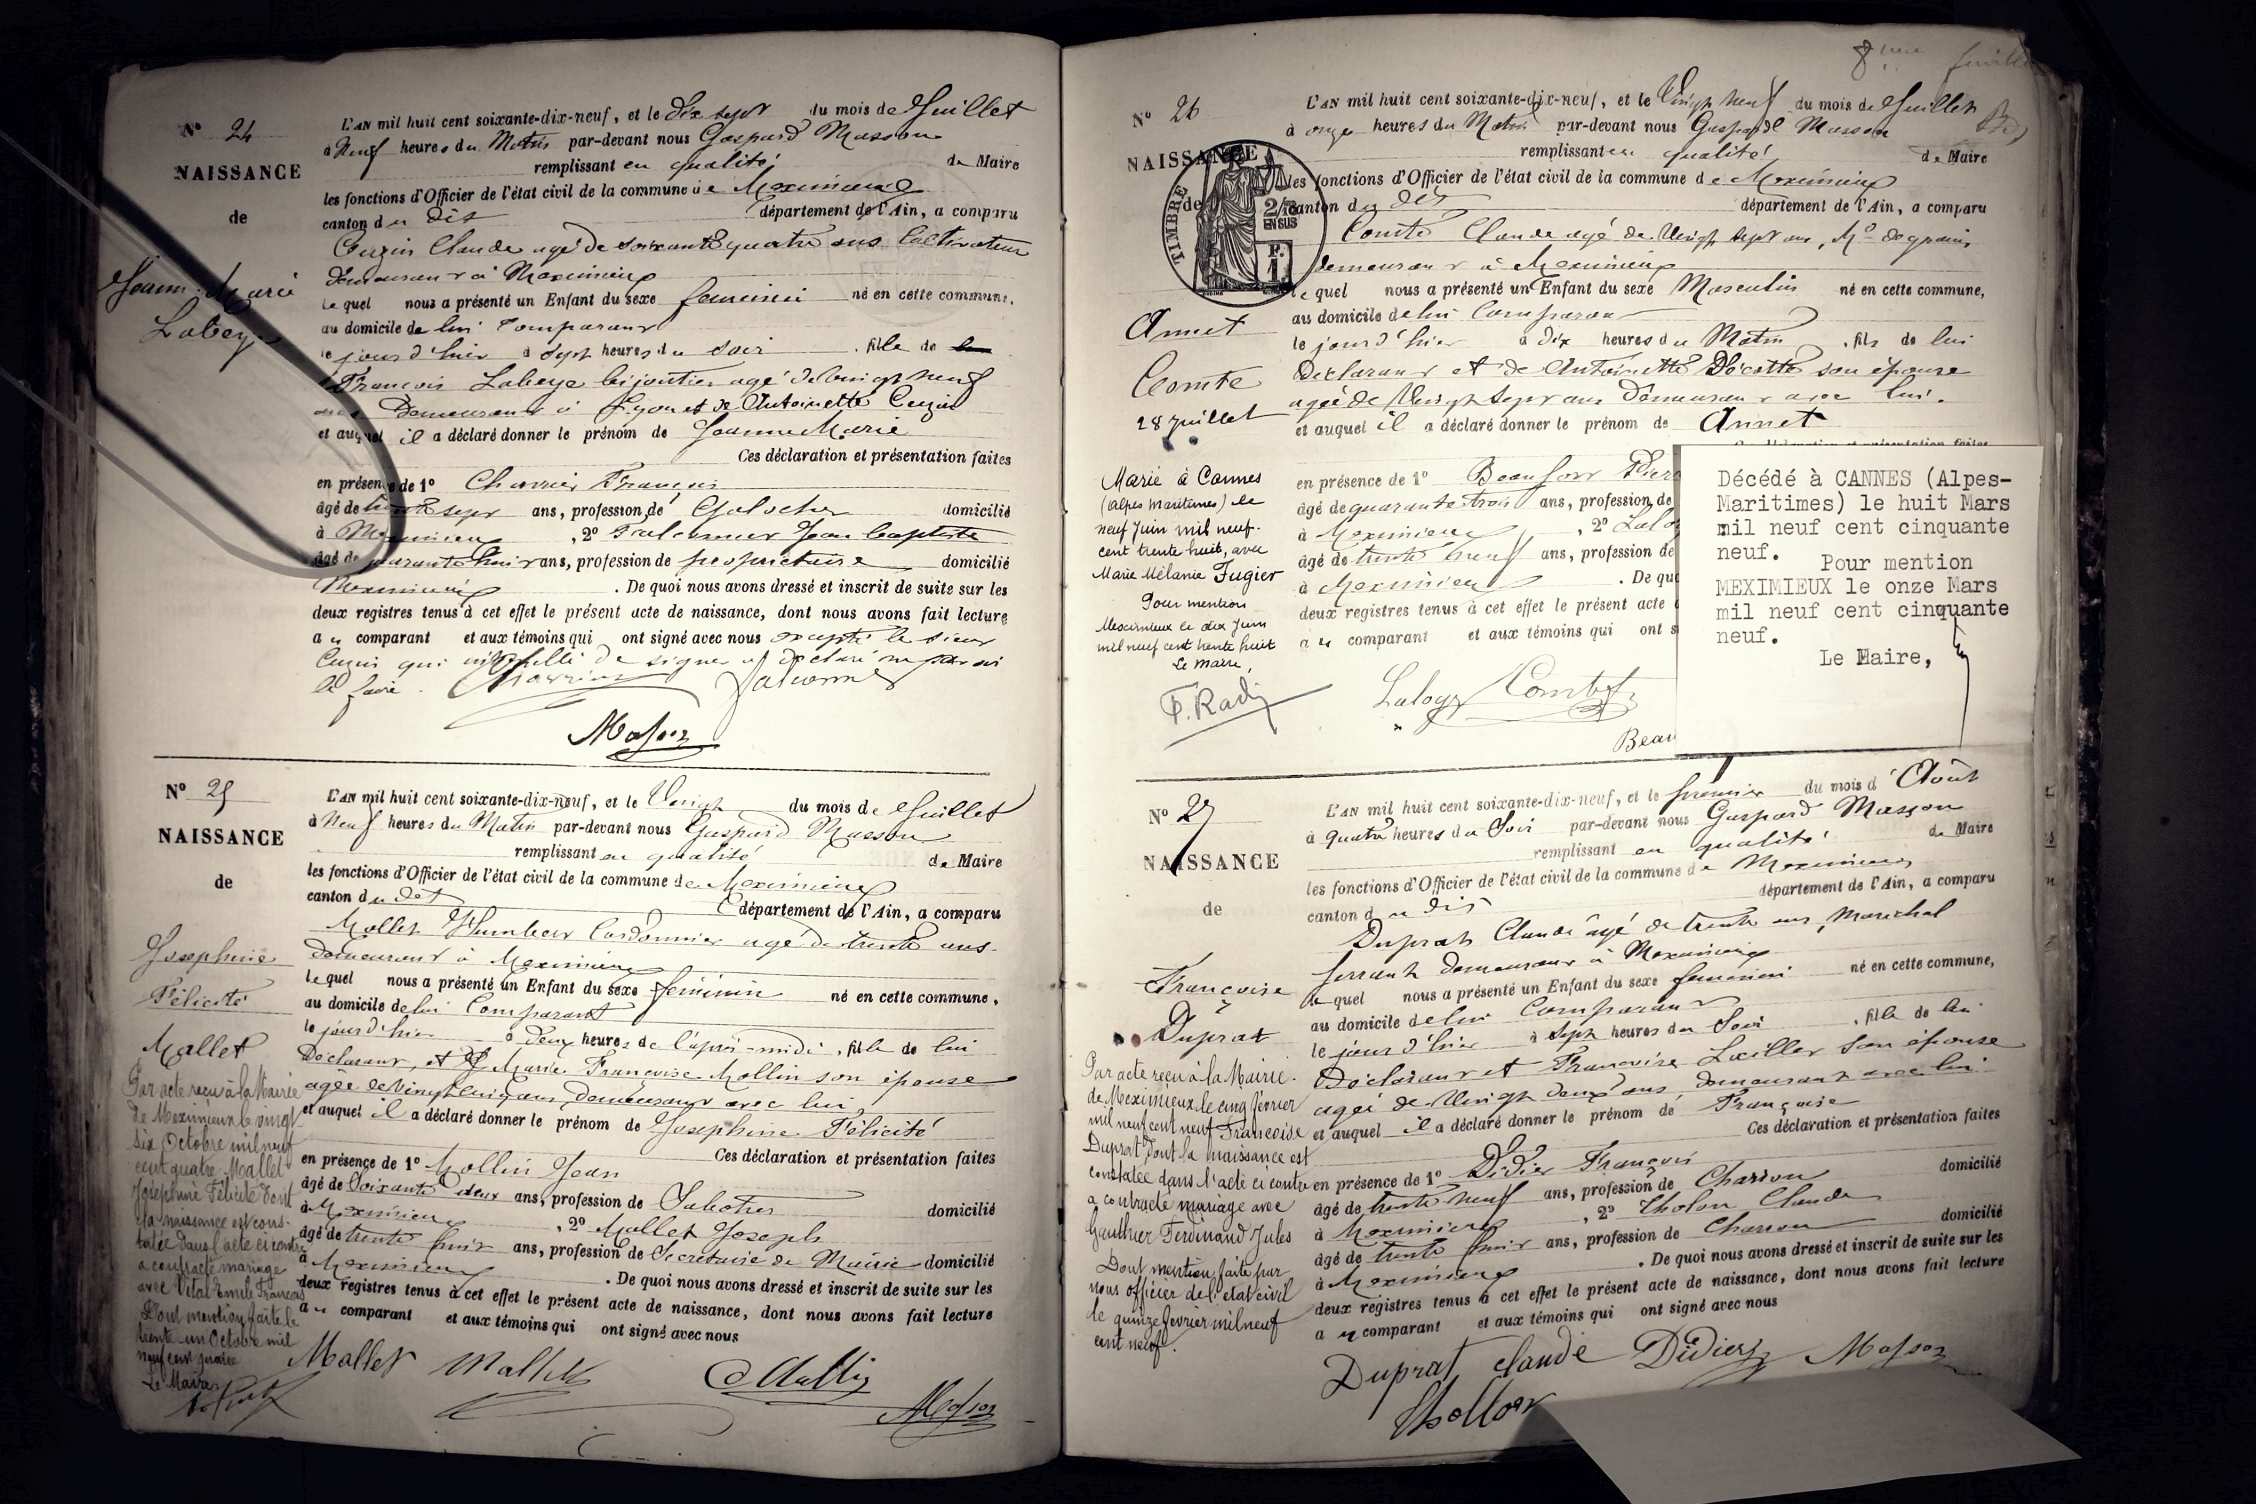 N° 24
NAISSANCE
de
Jeanne Marie
Labeye
L'AN mil huit cent soixante-dix-neuf, et le dix sept du mois de Juillet
à Neuf heures du Matin par-devant nous Gaspard Masson
remplissant en qualité de Maire
les fonctions d'Officier de l'état civil de la commune de Meximieux
canton du dit département de l'Ain, a comparu
Cuzin Claude agé de soixante quatre ans Cultivateur
demeurant à Meximieux
lequel nous a présenté un Enfant du sexe feminin né en cette commune,
au domicile de lui Comparant
le jour d'hier à sept heures du soir , fille de
François Labeye bijoutier agé de vingt neuf
ans Demeurant à Lyon et de Antoinette Cuzin
et auquel il a déclaré donner le prénom de Jeanne Marie
Ces déclaration et présentation faites
en présence de 1° Charrier François
âgé de trente sept ans, profession de Galocher domicilié
à Meximieux , 2° Falconnier Jean Baptiste
âgé de quarante huit ans, profession de propriétaire domicilié
Meximieux . De quoi nous avons dressé et inscrit de suite sur les
deux registres tenus à cet effet le présent acte de naissance, dont nous avons fait lecture
au comparant et aux témoins qui ont signé avec nous excepté le sieur
Cuzin qui interpellé de signer a déclaré ne savoir
le faire. Charrier Falconnier
Masson
N° 25
NAISSANCE
de
Josephine
Félicité
Mallet
L'AN mil huit cent soixante-dix-neuf, et le Vingt du mois de Juillet
à Neuf heures du Matin par-devant nous Gaspard Masson
remplissant en qualité de Maire
les fonctions d'Officier de l'état civil de la commune de Meximieux
canton du dit département de l'Ain, a comparu
Mallet Humbert Cordonnier agé de trente ans
demeurant à Meximieux
lequel nous a présenté un Enfant du sexe féminin né en cette commune,
au domicile de lui Comparant
le jour d'hier à deux heures de l'après-midi , fille de lui
Déclarant, et de Marie Françoise Mollin son épouse
agée de Vingt cinq ans, demeurant avec lui,
et auquel il a déclaré donner le prénom de Josephine Félicité
Ces déclaration et présentation faites
en présence de 1° Mollin Jean
âgé de Soixante deux ans, profession de Sabotier domicilié
à Meximieux , 2° Mallet Joseph
âgé de trente huit ans, profession de Secrétaire de Mairie domicilié
à Meximieux . De quoi nous avons dressé et inscrit de suite sur les
deux registres tenus à cet effet le présent acte de naissance, dont nous avons fait lecture
au comparant et aux témoins qui ont signé avec nous
Mallet Mallet Mollin
Masson
Par acte reçu à la Mairie
de Meximieux le vingt
six Octobre mil neuf
cent quatre Mallet
Josephine Félicité dont
la naissance est cons-
tatée dans l'acte ci contre
a contracté mariage
avec Vital Emile François
Dont mention faite le
trente un Octobre mil
neuf cent quatre
Le Maire
8ème feuillet
N° 26
NAISSANCE
de
TIMBRE
2/10
EN SUS
F.
1.
Annet
Comte
28 Juillet
L'AN mil huit cent soixante-dix-neuf, et le Vingt neuf du mois de Juillet
à onze heures du Matin par-devant nous Gaspard Masson
remplissant en qualité de Maire
les fonctions d'Officier de l'état civil de la commune de Meximieux
canton du dit département de l'Ain, a comparu
Comte Claude agé de Vingt sept ans, Md de grains
demeurant à Meximieux
lequel nous a présenté un Enfant du sexe Masculin né en cette commune,
au domicile de lui Comparant
le jour d'hier à dix heures du Matin , fils de lui
Déclarant et de Antoinette Décotte son épouse
agée de Vingt sept ans Demeurant avec lui.
et auquel il a déclaré donner le prénom de Annet
en présence de 1° Beaufort
âgé de quarante trois ans, profession de
à Meximieux , 2° Laloy
âgé de trente neuf ans, profession de
à Meximieux . De quo
deux registres tenus à cet effet le présent acte
au comparant et aux témoins qui ont s
Laloy Comte
Beau
Marié à Cannes
(Alpes Maritimes) le
neuf Juin mil neuf-
cent trente huit, avec
Marie Mélanie Fugier
Pour mention
Meximieux le dix Juin
mil neuf cent trente huit
Le Maire,
Décédé à CANNES (Alpes-
Maritimes) le huit Mars
mil neuf cent cinquante
neuf.
Pour mention
MEXIMIEUX le onze Mars
mil neuf cent cinquante
neuf.
Le Maire,
N° 27
NAISSANCE
de
Françoise
Duprat
L'AN mil huit cent soixante-dix-neuf, et le premier du mois d'Août
à quatre heures du Soir par-devant nous Gaspard Masson
remplissant en qualité de Maire
les fonctions d'Officier de l'état civil de la commune de Meximieux
canton du dit département de l'Ain, a comparu
Duprat Claude âgé de trente ans, Maréchal
ferrant demeurant à Meximieux
lequel nous a présenté un Enfant du sexe feminin né en cette commune,
au domicile de lui Comparant
le jour d'hier à sept heures du Soir , fille de lui
Déclarant et Françoise Luiller son épouse
agée de Vingt deux ans, demeurant avec lui
et auquel il a déclaré donner le prénom de Françoise
Ces déclaration et présentation faites
en présence de 1° Didier François
âgé de trente neuf ans, profession de Charron domicilié
à Meximieux , 2° Tholon Claude
âgé de trente huit ans, profession de Charron domicilié
à Meximieux . De quoi nous avons dressé et inscrit de suite sur les
deux registres tenus à cet effet le présent acte de naissance, dont nous avons fait lecture
au comparant et aux témoins qui ont signé avec nous
Duprat Claude Didier Masson
Thollon
Par acte reçu à la Mairie
de Meximieux le cinq février
mil neuf cent neuf Françoise
Duprat dont la naissance est
constatée dans l'acte ci contre
a contracté mariage avec
Gauthier Ferdinand Jules
Dont mention faite par
nous officier de l'état civil
le quinze février mil neuf
cent neuf.